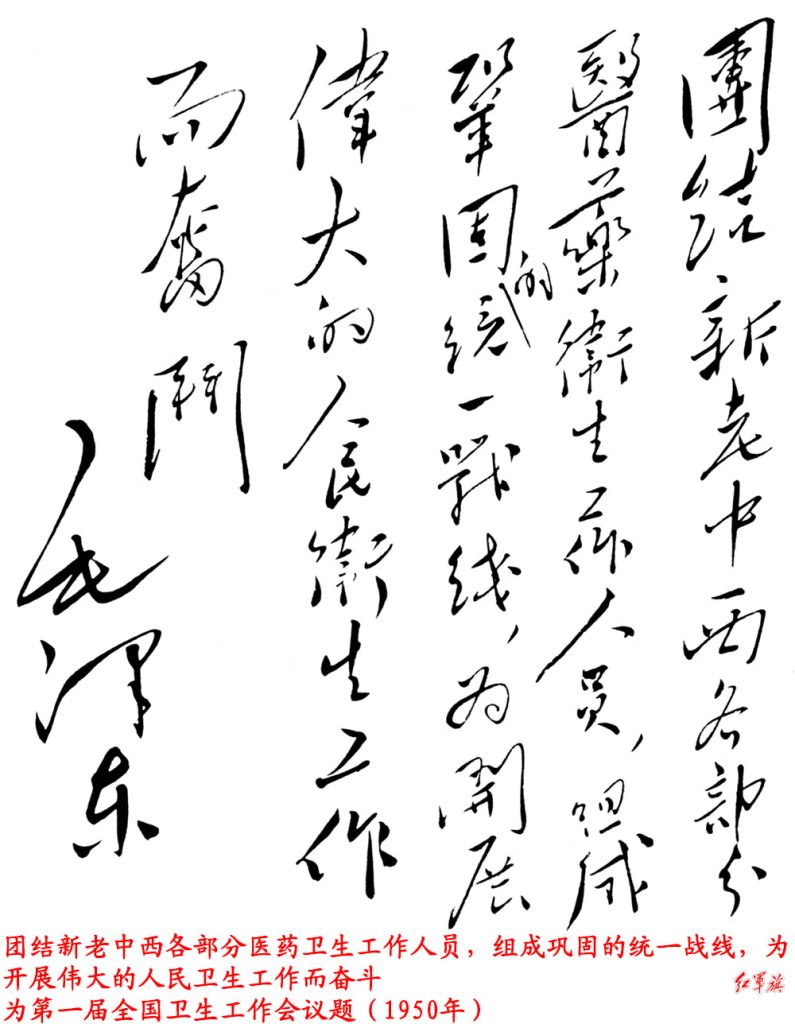 團结新老中西各部分
醫藥衛生工作人員,组成
鞏固的统一戰线,为開展
偉大的人民衛生工作
而奮鬥
毛泽东
团结新老中西各部分医药卫生工作人员，组成巩固的统一战线，为
开展伟大的人民卫生工作而奋斗
为第一届全国卫生工作会议题（1950年）
红军旗